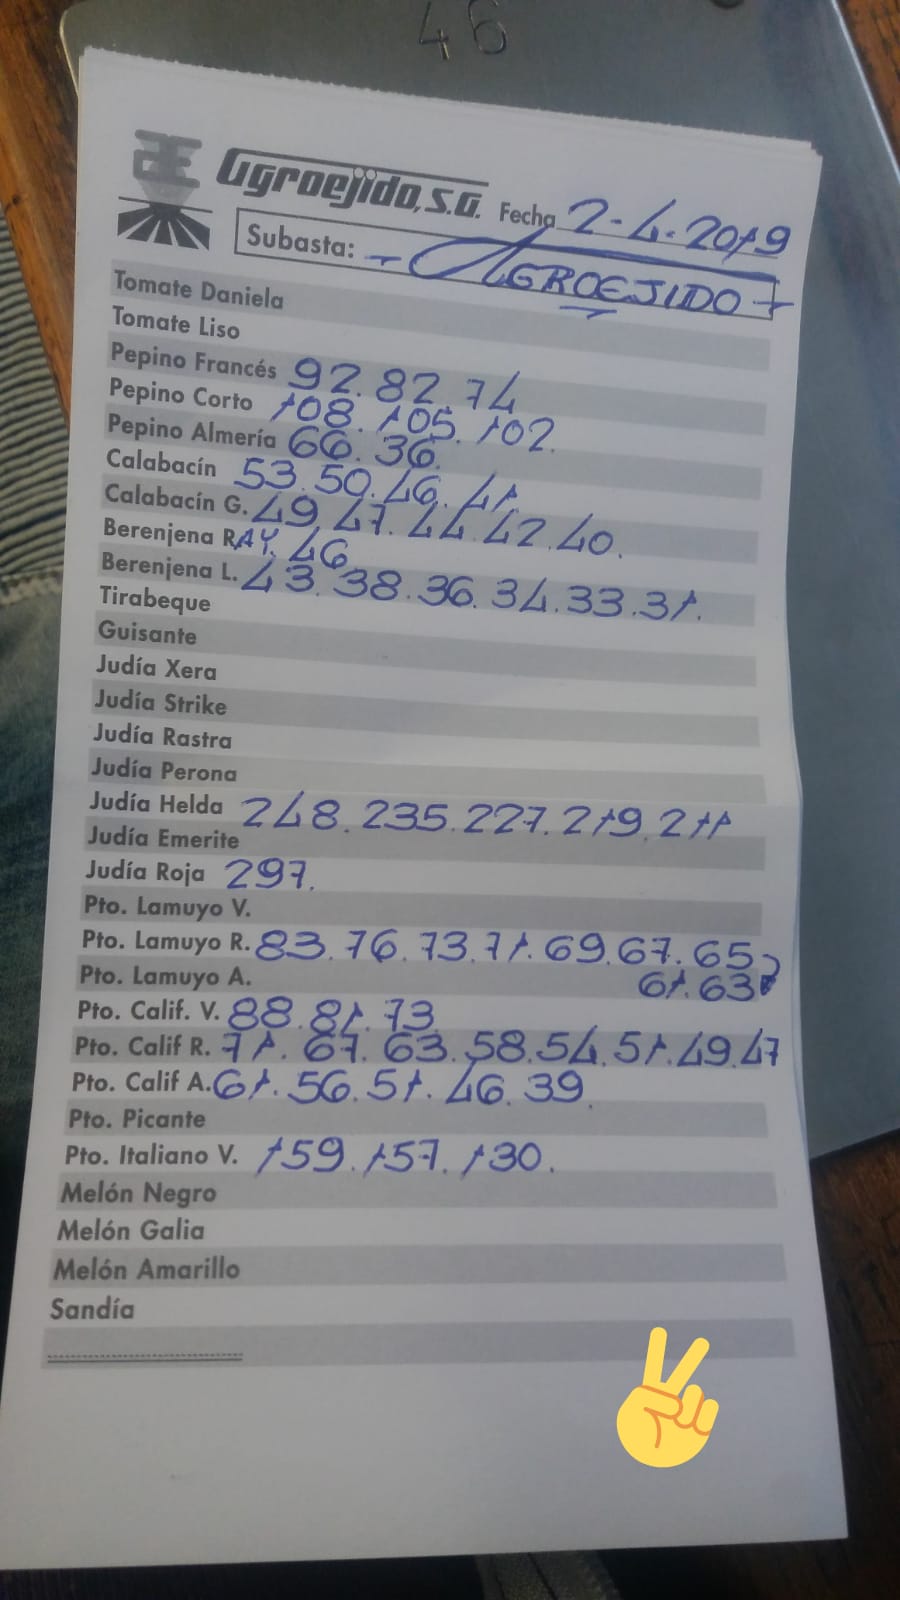 46
Agroejido, S.A. Fecha 2-4-2019
Subasta: - AGROEJIDO -
Tomate Daniela
Tomate Liso
Pepino Francés 92. 82. 74
Pepino Corto 108. 105. 102.
Pepino Almería 66. 36.
Calabacín 53. 50. 46. 41.
Calabacín G. 49. 47. 44. 42. 40.
Berenjena RAY. 46
Berenjena L. 43. 38. 36. 34. 33. 31.
Tirabeque
Guisante
Judía Xera
Judía Strike
Judía Rastra
Judía Perona
Judía Helda 248. 235. 227. 219. 211
Judía Emerite
Judía Roja 297.
Pto. Lamuyo V.
Pto. Lamuyo R. 83. 76. 73. 71. 69. 67. 65
Pto. Lamuyo A. 61. 63
Pto. Calif. V. 88. 81. 73
Pto. Calif R. 71. 67. 63. 58. 54. 51. 49. 47
Pto. Calif A. 61. 56. 51. 46. 39.
Pto. Picante
Pto. Italiano V. 159. 157. 130.
Melón Negro
Melón Galia
Melón Amarillo
Sandía